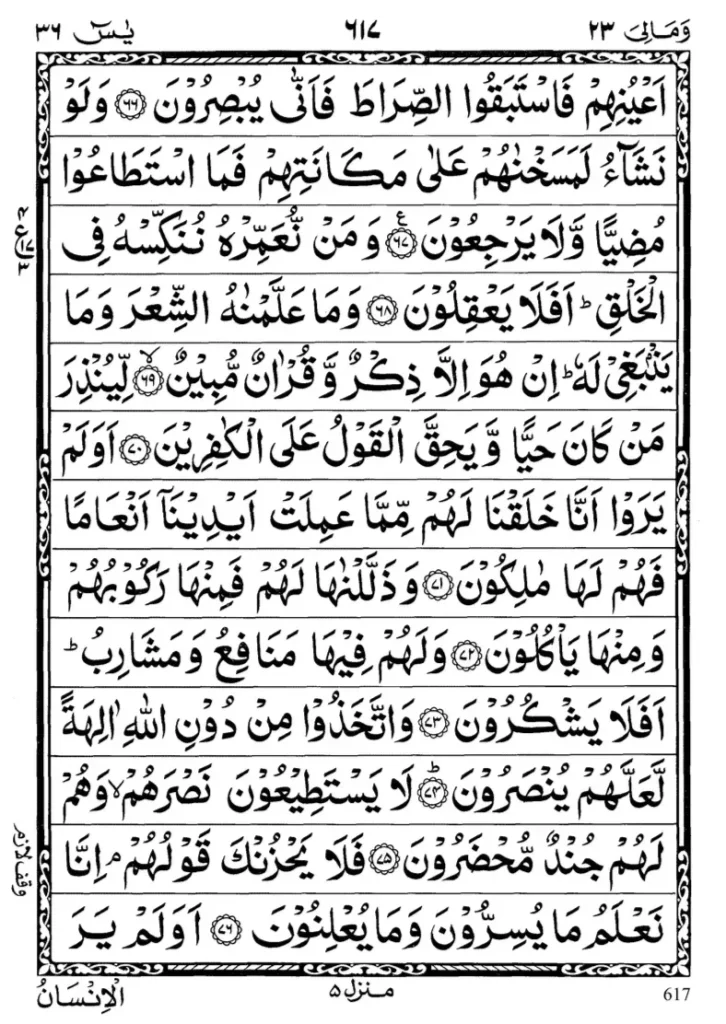 وَمَالِىَ ٢٣ ٦١٧ يٰسٓ ٣٦
اَعْيُنِهِمْ فَاسْتَبَقُوا الصِّرَاطَ فَاَنّٰى يُبْصِرُوْنَ ﴿٦٦﴾ وَلَوْ
نَشَآءُ لَمَسَخْنٰهُمْ عَلٰى مَكَانَتِهِمْ فَمَا اسْتَطَاعُوْا
مُضِيًّا وَّلَا يَرْجِعُوْنَ ﴿٦٧﴾ ع وَمَنْ نُّعَمِّرْهُ نُنَكِّسْهُ فِى
الْخَلْقِ ؕ اَفَلَا يَعْقِلُوْنَ ﴿٦٨﴾ وَمَا عَلَّمْنٰهُ الشِّعْرَ وَمَا
يَنْۢبَغِىْ لَهٗ ؕ اِنْ هُوَ اِلَّا ذِكْرٌ وَّ قُرْاٰنٌ مُّبِيْنٌ ﴿٦٩﴾ ۙ لِّيُنْذِرَ
مَنْ كَانَ حَيًّا وَّيَحِقَّ الْقَوْلُ عَلَى الْكٰفِرِيْنَ ﴿٧٠﴾ اَوَلَمْ
يَرَوْا اَنَّا خَلَقْنَا لَهُمْ مِّمَّا عَمِلَتْ اَيْدِيْنَاۤ اَنْعَامًا
فَهُمْ لَهَا مٰلِكُوْنَ ﴿٧١﴾ وَذَلَّلْنٰهَا لَهُمْ فَمِنْهَا رَكُوْبُهُمْ
وَمِنْهَا يَاْكُلُوْنَ ﴿٧٢﴾ وَلَهُمْ فِيْهَا مَنَافِعُ وَمَشَارِبُ ؕ
اَفَلَا يَشْكُرُوْنَ ﴿٧٣﴾ وَاتَّخَذُوْا مِنْ دُوْنِ اللّٰهِ اٰلِهَةً
لَّعَلَّهُمْ يُنْصَرُوْنَ ﴿٧٤﴾ ؕ لَا يَسْتَطِيْعُوْنَ نَصْرَهُمْ ۙ وَهُمْ
لَهُمْ جُنْدٌ مُّحْضَرُوْنَ ﴿٧٥﴾ فَلَا يَحْزُنْكَ قَوْلُهُمْ ۘ اِنَّا
وقف لازم
نَعْلَمُ مَا يُسِرُّوْنَ وَمَا يُعْلِنُوْنَ ﴿٧٦﴾ اَوَلَمْ يَرَ
الْاِنْسَانُ منزل ٥ 617